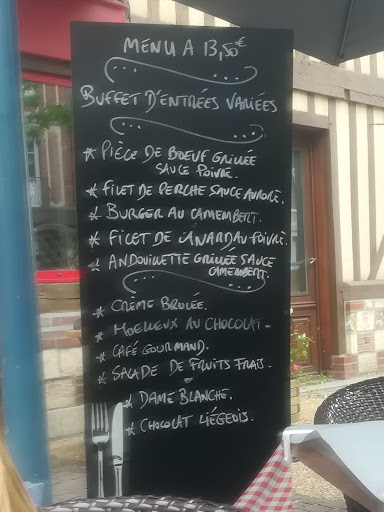 MENU A 13,50€
BUFFET D'ENTRÉES VARIÉES
* PIÈCE DE BOEUF GRILLÉE
SAUCE POIVRE.
* FILET DE PERCHE SAUCE AURORE.
* BURGER AU CAMEMBERT.
* FILET DE CANARD AU POIVRE.
* ANDOUILLETTE GRILLÉE SAUCE
CAMEMBERT.
* CRÈME BRULÉE.
* MOELLEUX AU CHOCOLAT -
* CAFÉ GOURMAND.
* SALADE DE FRUITS FRAIS -
* DAME BLANCHE.
* CHOCOLAT LIÉGEOIS.